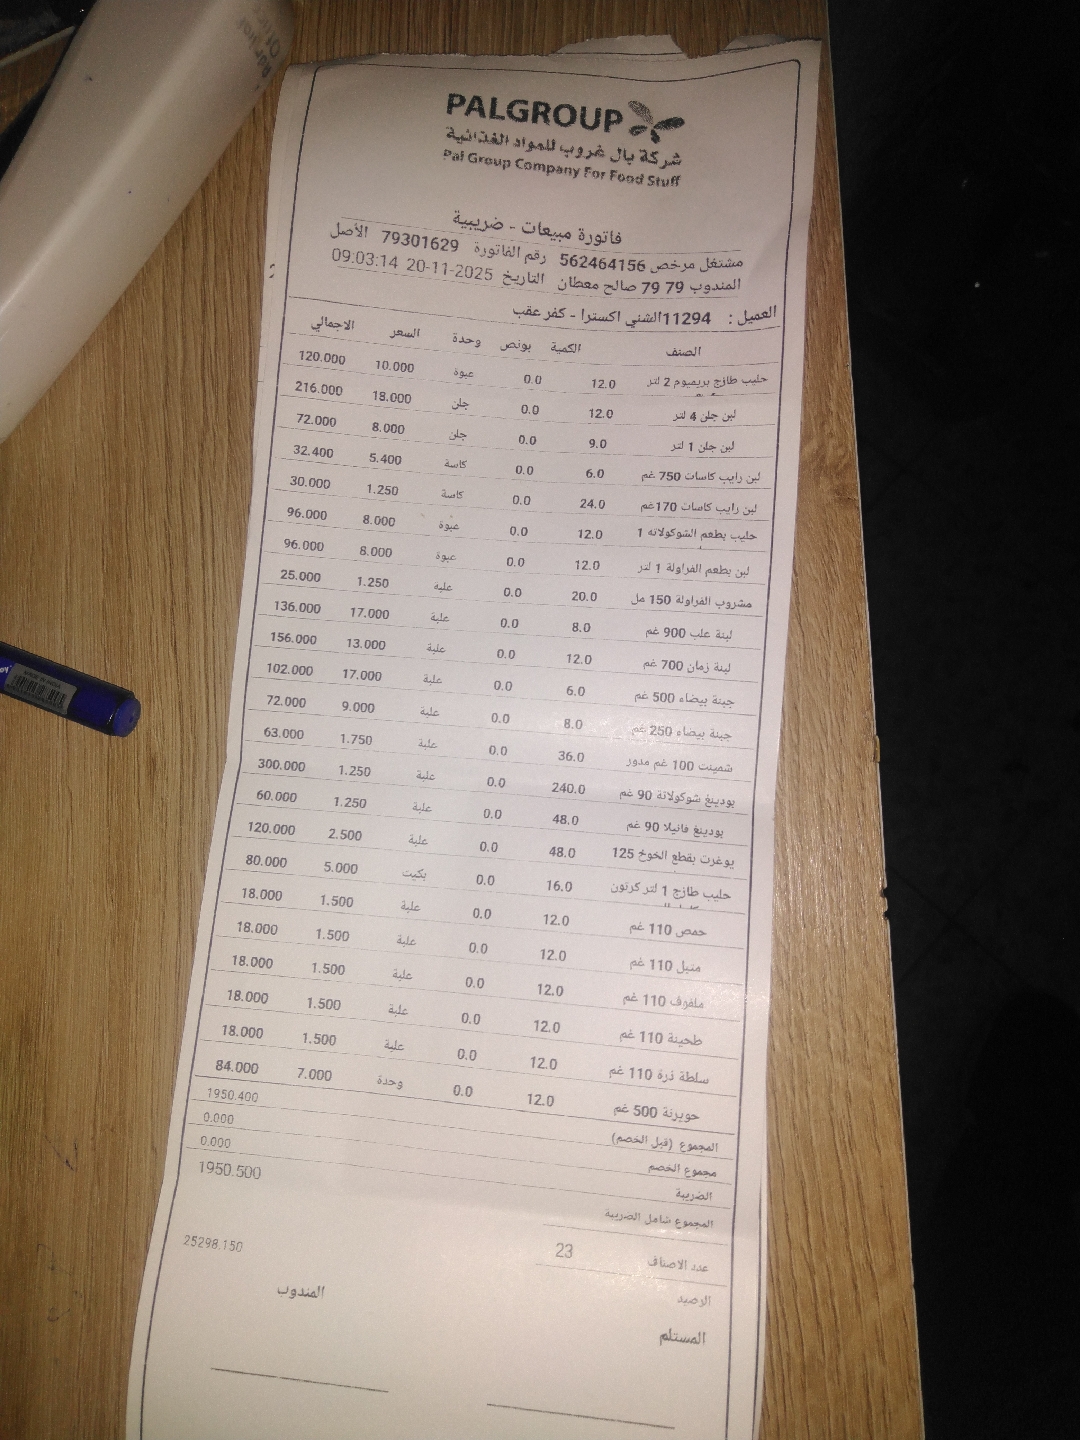 PALGROUP
شركة بال غروب للمواد الغذائية
Pal Group Company For Food Stuff
فاتورة مبيعات - ضريبية
مشتغل مرخص 562464156 رقم الفاتورة 79301629 الأصل
المندوب 79 79 صالح معطان التاريخ 20-11-2025 09:03:14
العميل : 11294الشني اكسترا - كفر عقب
الصنف الكمية بونص وحدة السعر الاجمالي
حليب طازج بريميوم 2 لتر 12.0 0.0 عبوة 10.000 120.000
لبن جلن 4 لتر 12.0 0.0 جلن 18.000 216.000
لبن جلن 1 لتر 9.0 0.0 جلن 8.000 72.000
لبن رايب كاسات 750 غم 6.0 0.0 كاسة 5.400 32.400
لبن رايب كاسات 170غم 24.0 0.0 كاسة 1.250 30.000
حليب بطعم الشوكولاته 1 12.0 0.0 عبوة 8.000 96.000
لبن بطعم الفراولة 1 لتر 12.0 0.0 عبوة 8.000 96.000
مشروب الفراولة 150 مل 20.0 0.0 علبة 1.250 25.000
لبنة علب 900 غم 8.0 0.0 علبة 17.000 136.000
لبنة زمان 700 غم 12.0 0.0 علبة 13.000 156.000
جبنة بيضاء 500 غم 6.0 0.0 علبة 17.000 102.000
جبنة بيضاء 250 غم 8.0 0.0 علبة 9.000 72.000
شمينت 100 غم مدور 36.0 0.0 علبة 1.750 63.000
بودينغ شوكولاتة 90 غم 240.0 0.0 علبة 1.250 300.000
بودينغ فانيلا 90 غم 48.0 0.0 علبة 1.250 60.000
يوغرت بقطع الخوخ 125 48.0 0.0 علبة 2.500 120.000
حليب طازج 1 لتر كرتون 16.0 0.0 بكيت 5.000 80.000
حمص 110 غم 12.0 0.0 علبة 1.500 18.000
متبل 110 غم 12.0 0.0 علبة 1.500 18.000
ملفوف 110 غم 12.0 0.0 علبة 1.500 18.000
طحينة 110 غم 12.0 0.0 علبة 1.500 18.000
سلطة ذرة 110 غم 12.0 0.0 علبة 1.500 18.000
جويرنة 500 غم 12.0 0.0 وحدة 7.000 84.000
المجموع (قبل الخصم) 1950.400
مجموع الخصم 0.000
الضريبة 0.000
المجموع شامل الضريبة 1950.500
عدد الاصناف 23
الرصيد 25298.150
المستلم المندوب